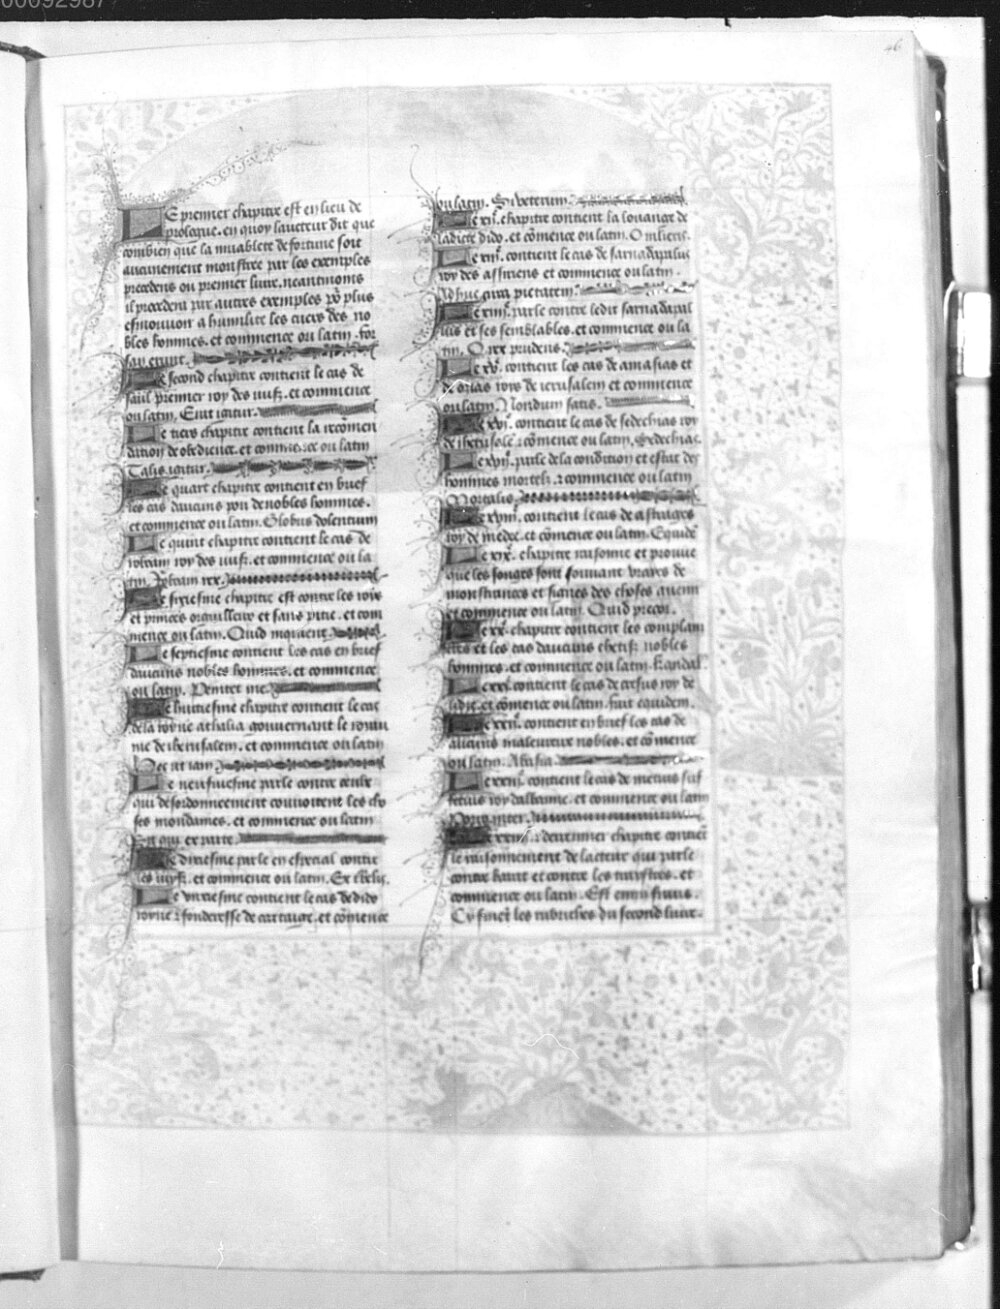 00092987
46
Le premier chapitre est en lieu de
prologue. en quoy laucteur dit que
combien que la muablete de fortune soit
aucunement monstree par les exemples
precedens ou premier liure. neantmoins
il procedent par autres exemples po' plus
esmouuoir a humilite les cuers des no
bles hommes. et commence ou latin. for
san erunt.
Le second chapitre contient le cas de
saul premier roy des iuifz. et commence
ou latin. Erat igitur.
Le tiers chapitre contient la recomen
dation de obedience. et commence ou latin
Talis igitur.
Le quart chapitre contient en brief
les cas daucuns pou de nobles hommes.
et commence ou latin. Globus dolentium
Le quint chapitre contient le cas de
roboam roy des iuifz. et commence ou la
tin. Roboam rex.
Le sixiesme chapitre est contre les rois
et princes orguilleux et sans pitie. et com
mence ou latin. Quid inquient
Le septiesme contient les cas en brief
daucuns nobles hommes. et commence
ou latin. Penitet me.
Le huitiesme chapitre contient le cas
de la royne athalia gouuernant le roiau
me de iherusalem. et commence ou latin
Nec ut iam
Le neufuiesme parle contre ceulx
qui desordonneement couuoitent les cho
ses mondames. et commence ou latin
Le dixiesme parle en especial contre
les iuifz. et commence ou latin. Ex
Le unziesme contient le cas de dido
royne z fonderesse de cartaige. et cōmence
ou latin. Si veterum.
Le xii.e chapitre contient la louange de
ladicte dido. et cōmence ou latin. O mulieris.
Le xiii.e contient le cas de sardanapalus
roy des assiriens et commence ou latin.
Adhuc circa pietatem.
Le xiiii.e parle contre ledit sardanapal
lus et ses semblables. et commence ou la
tin. O rex prudens.
Le xv.e contient les cas de amasias et
de ozias rois de iherusalem et commence
ou latin. Nondum satis.
Le xvi.e contient le cas de sedechias roy
de iherusalem z cōmence ou latin. Sedechias.
Le xvii.e parle de la condition et estat des
hommes mortelz. z commence ou latin
Mortalis
Le xviii.e contient le cas de astiages
roy de mede. et cōmence ou latin. Equidem
Le xix.e chapitre raisonne et prouue
que les songes sont souuant vrayes de
monstrances et signes des choses auenir
et commence ou latin. Quid precor.
Le xx.e chapitre contient les complain
tes et les cas daucuns chetifz nobles
hommes. et commence ou latin.
Le xxi.e contient le cas de cresus roy de
lidie. et cōmence ou latin. fuit equidem.
Le xxii.e contient en brief les cas de
aucuns maleureux nobles. et cōmence
ou latin.
Le xxiii.e contient le cas de metius suf
fetius roy dalbanie. et commence ou latin
Le xxiiii.e z derrenier chapitre contiēt
le raisonnement de lacteur qui parle
contre baux et contre les tristes. et
commence ou latin. Est enim
Cy finēt les rubriches du second liure.